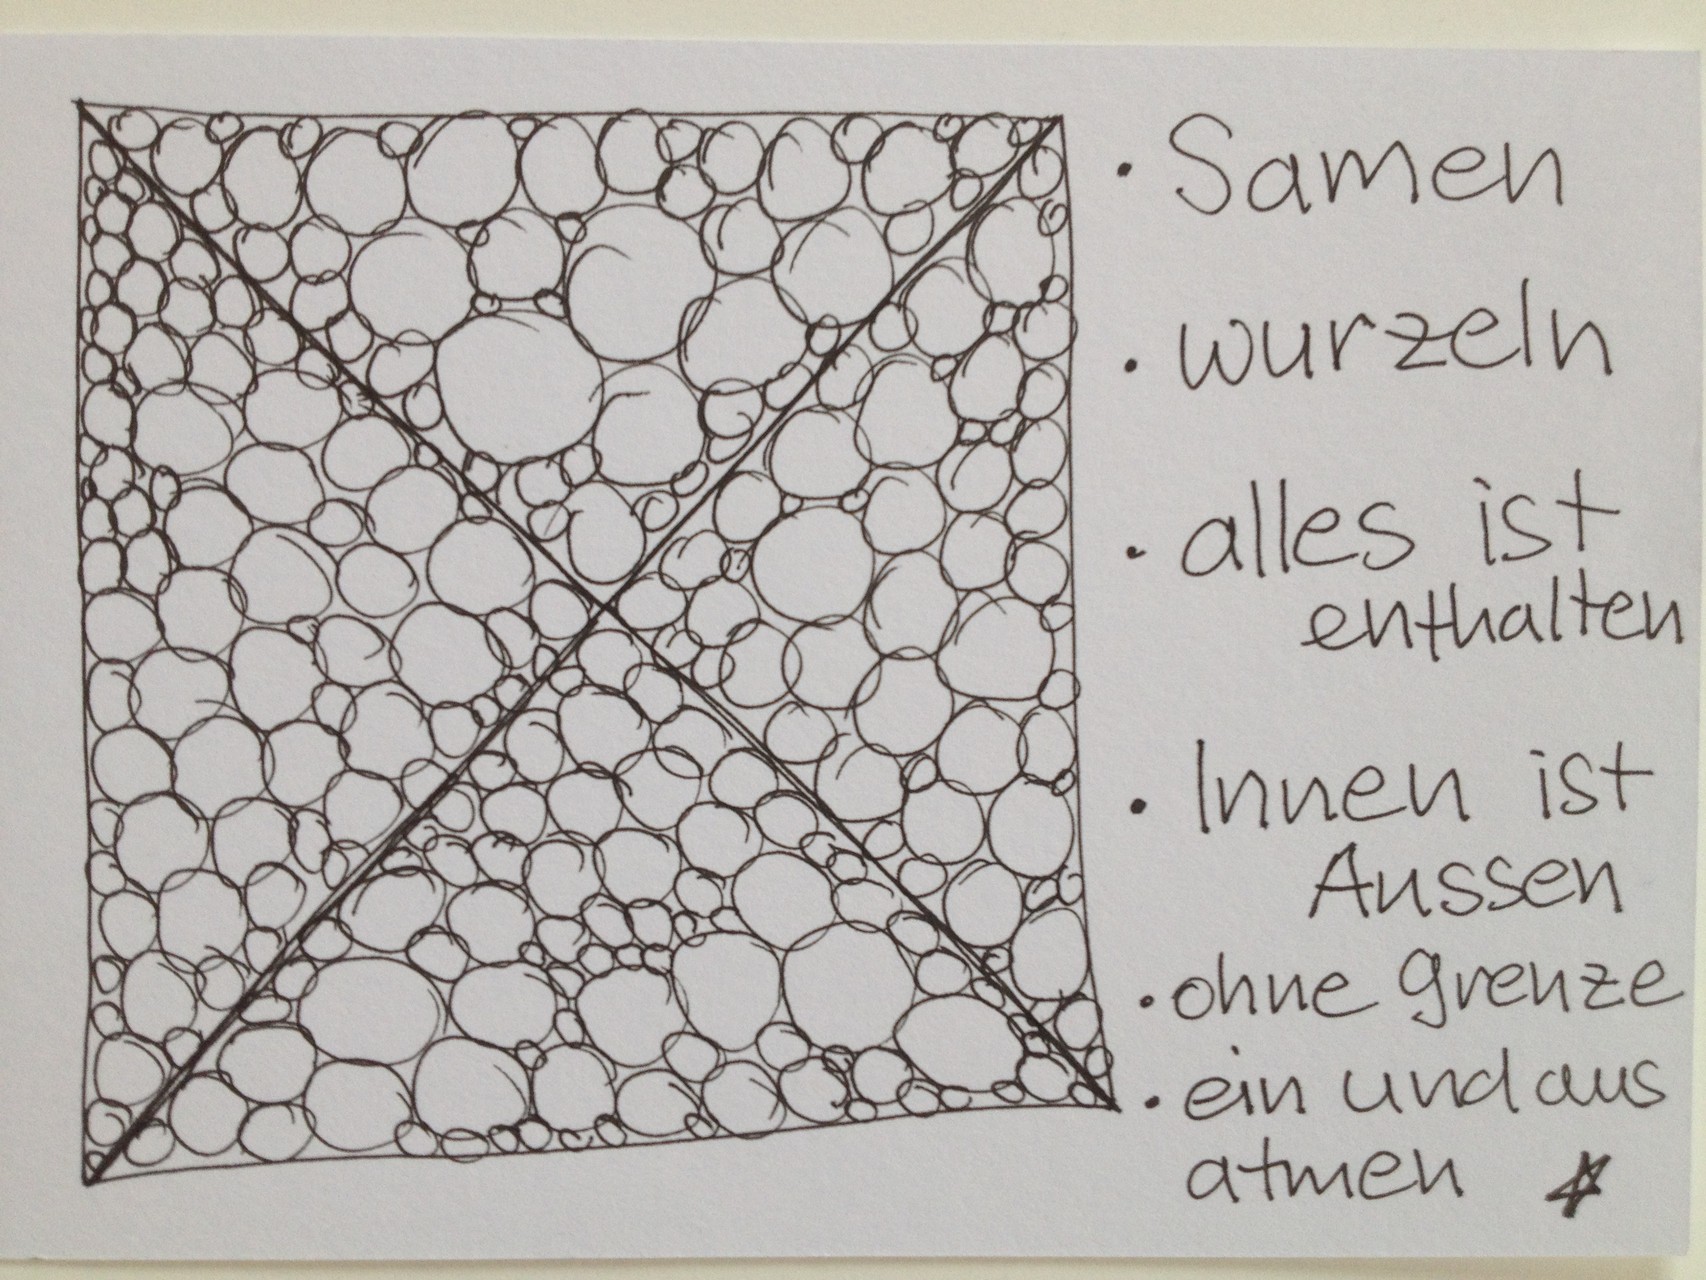 · Samen
· wurzeln
· alles ist
enthalten
· Innen ist
Aussen
· ohne grenze
· ein und aus
atmen